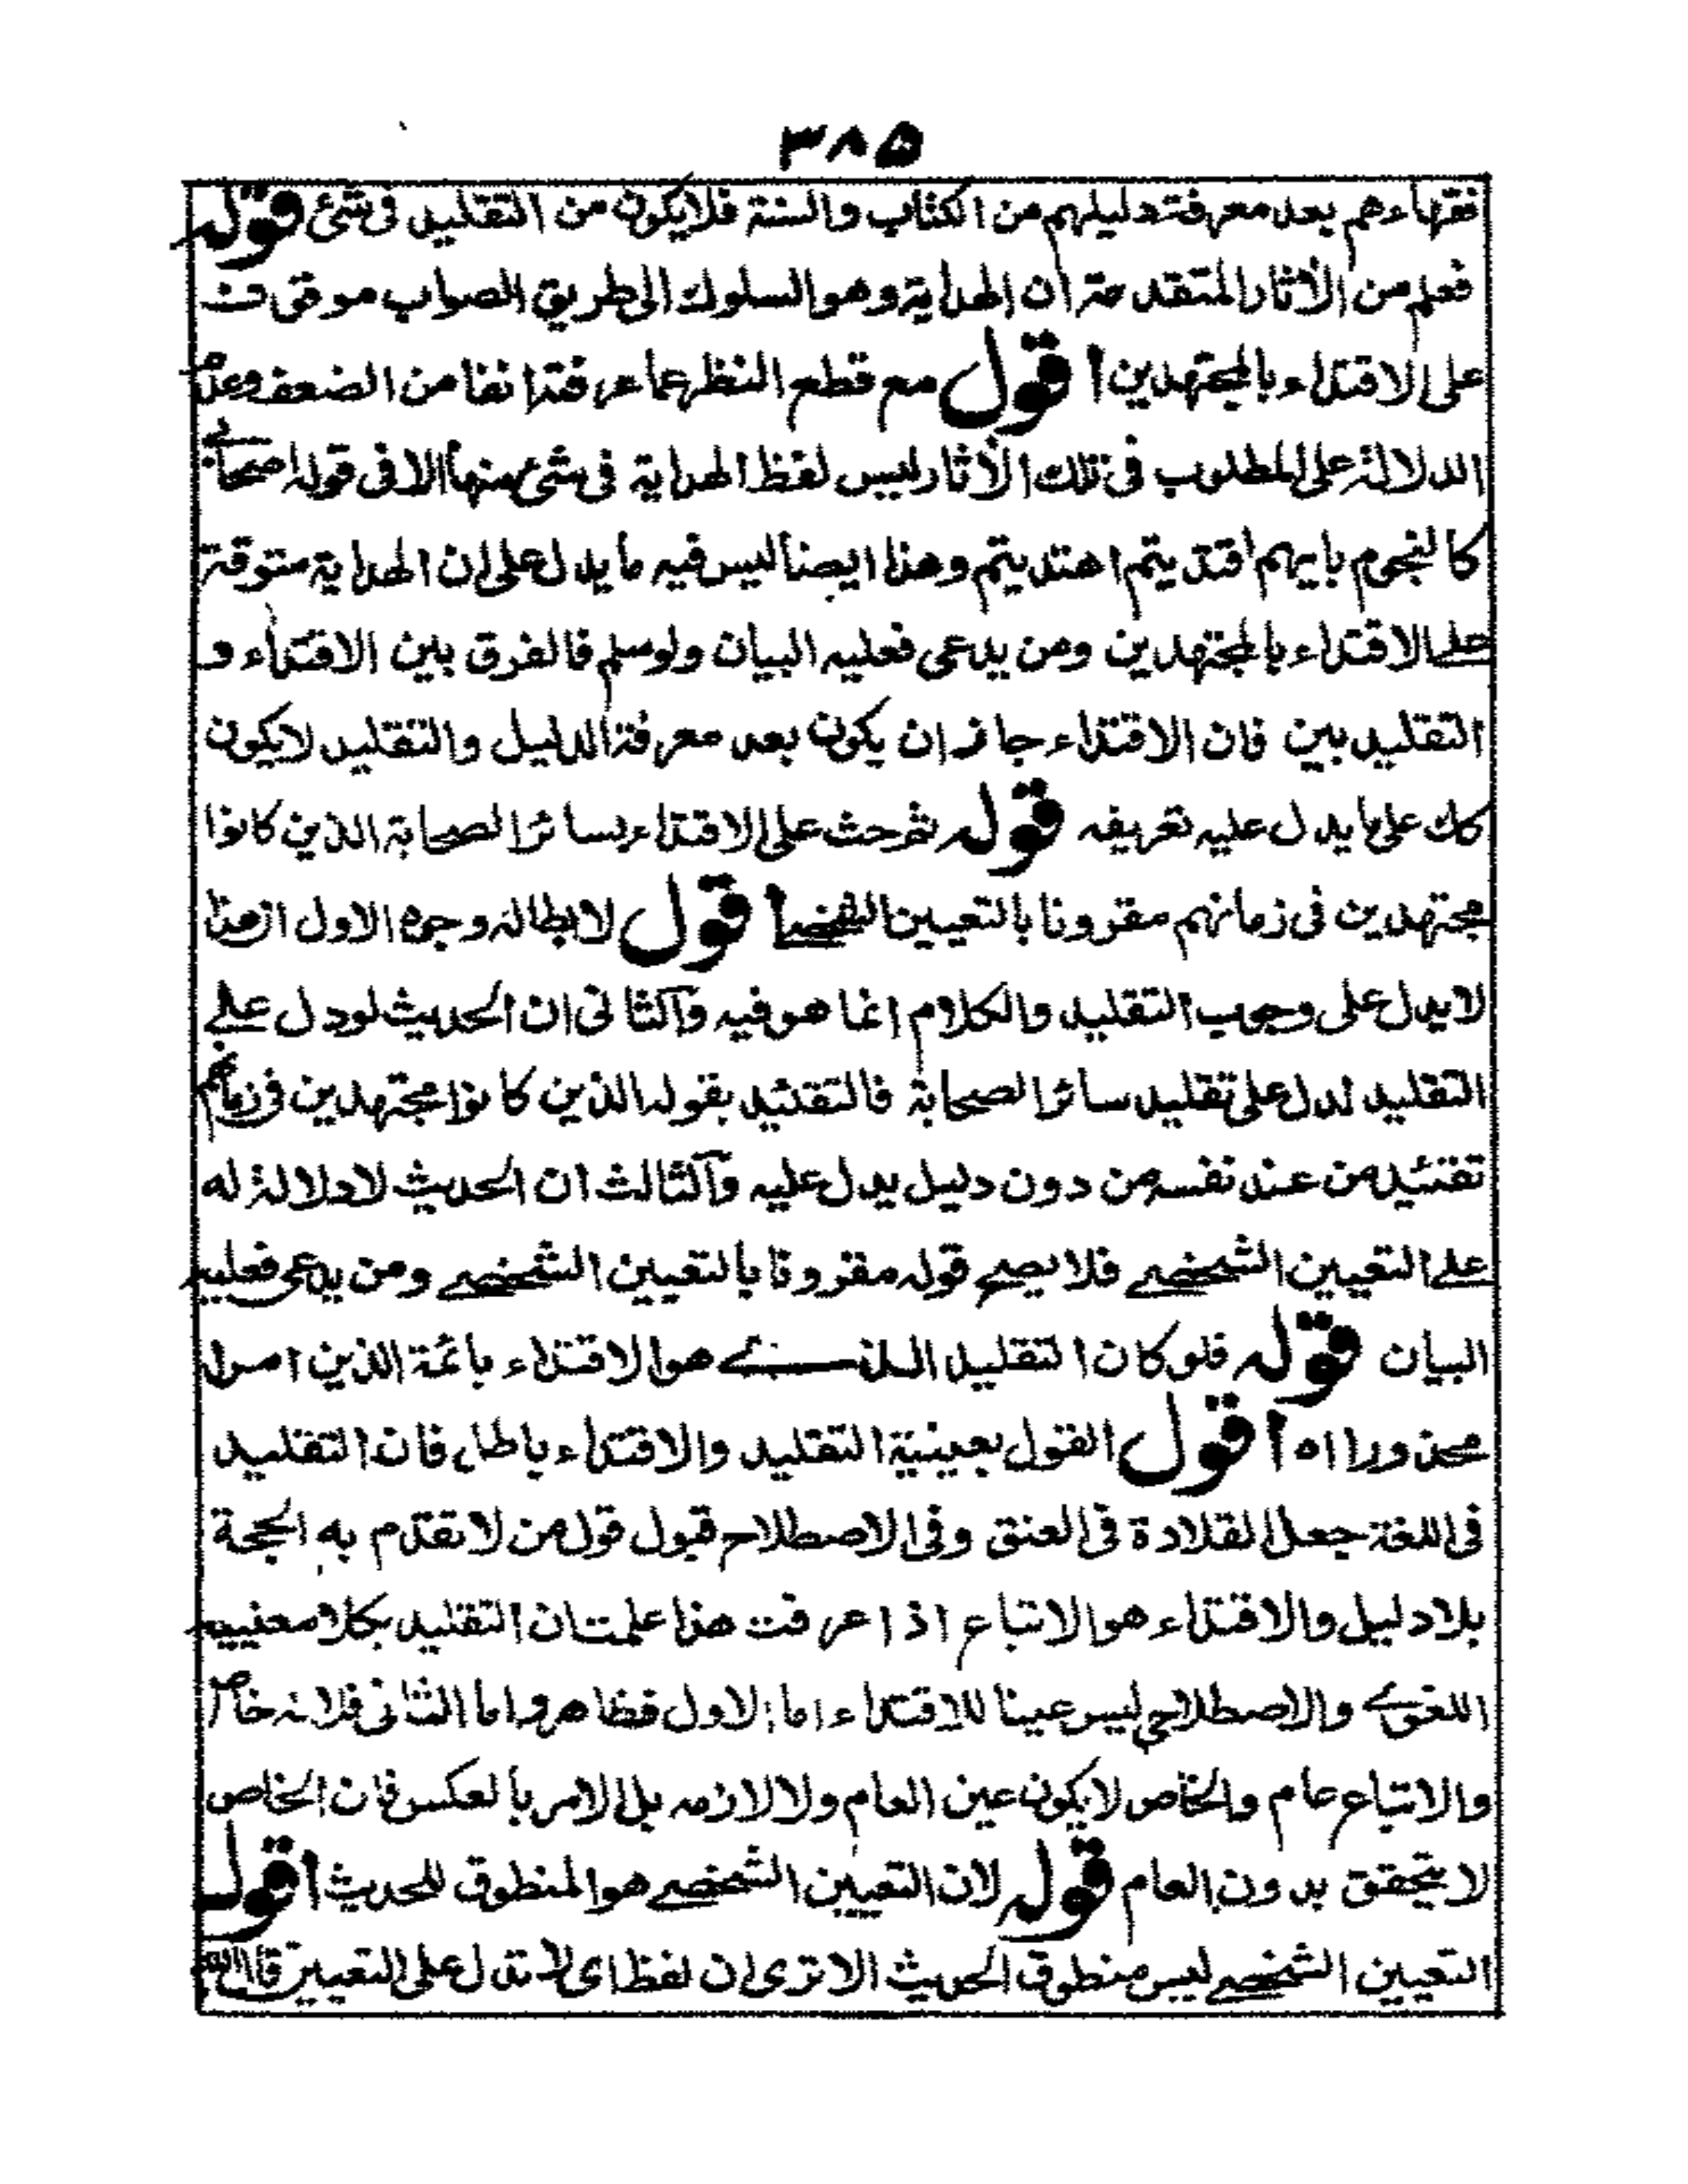 ٣٨٥
فقهاءهم بعد معرفة دليلهم من الكتاب والسنة فلا يكون من التقليد فى شئ قوله
فعلم من الآثار المتقدمة ان الهداية وهو السلوك الى طريق الصواب موقوفة
على الاقتداء بالمجتهدين اقول مع قطع النظر عما عرفته انفا من الضعف وعدم
الدلالة على المطلوب فى تلك الآثار ليس لفظ الهداية فى شئ منها الا فى قوله اصحابى
كالنجوم بايهم اقتديتم اهتديتم وهذا ايضا ليس فيه ما يدل على ان الهداية متوقة
على الاقتداء بالمجتهدين ومن يدعى فعليه البيان ولو سلم فالفرق بين الاقتداء و
التقليد بين فان الاقتداء جاز ان يكون بعد معرفة الدليل والتقليد لا يكون
كك على ما يدل عليه تعريفه قوله ثم حث على الاقتداء بسائر الصحابة الذين كانوا
مجتهدين فى زمانهم مقرونا بالتعيين الشخصى اقول لابطاله وجوه الاول ان هذا
لا يدل على وجوب التقليد والكلام انما هو فيه والثانى ان الحديث لو دل على
التقليد لدل على تقليد سائر الصحابة فالتقئيد بقوله الذين كانوا مجتهدين فى زمانهم
تقئيد من عند نفسه من دون دليل يدل عليه والثالث ان الحديث لا دلالة له
على التعيين الشخصى فلا يصح قوله مقرونا بالتعيين الشخصى ومن يدعى فعليه
البيان قوله فلو كان التقليد الذى هو الاقتداء بائمة الذين امرا
محذورا اه اقول القول بعينية التقليد والاقتداء باطل فان التقليد
فى اللغة جعل القلادة فى العنق وفى الاصطلاح قبول قول من لا تقدم به الحجة
بلا دليل والاقتداء هو الاتباع اذا عرفت هذا علمت ان التقليد بكلا معنييه
اللغوى والاصطلاحى ليس عينا للاقتداء اما الاول فظاهر واما الثانى فلانه خاص
والاتباع عام والخاص لا يكون عين العام ولا لازمه بل الامر بالعكس فان الخاص
لا يتحقق بدون العام قوله لان التعيين الشخصى هو المنطوق للحديث اقول
التعيين الشخصى ليس منطوق الحديث الا ترى ان لفظ اى لا تدل على التعيين قال الله